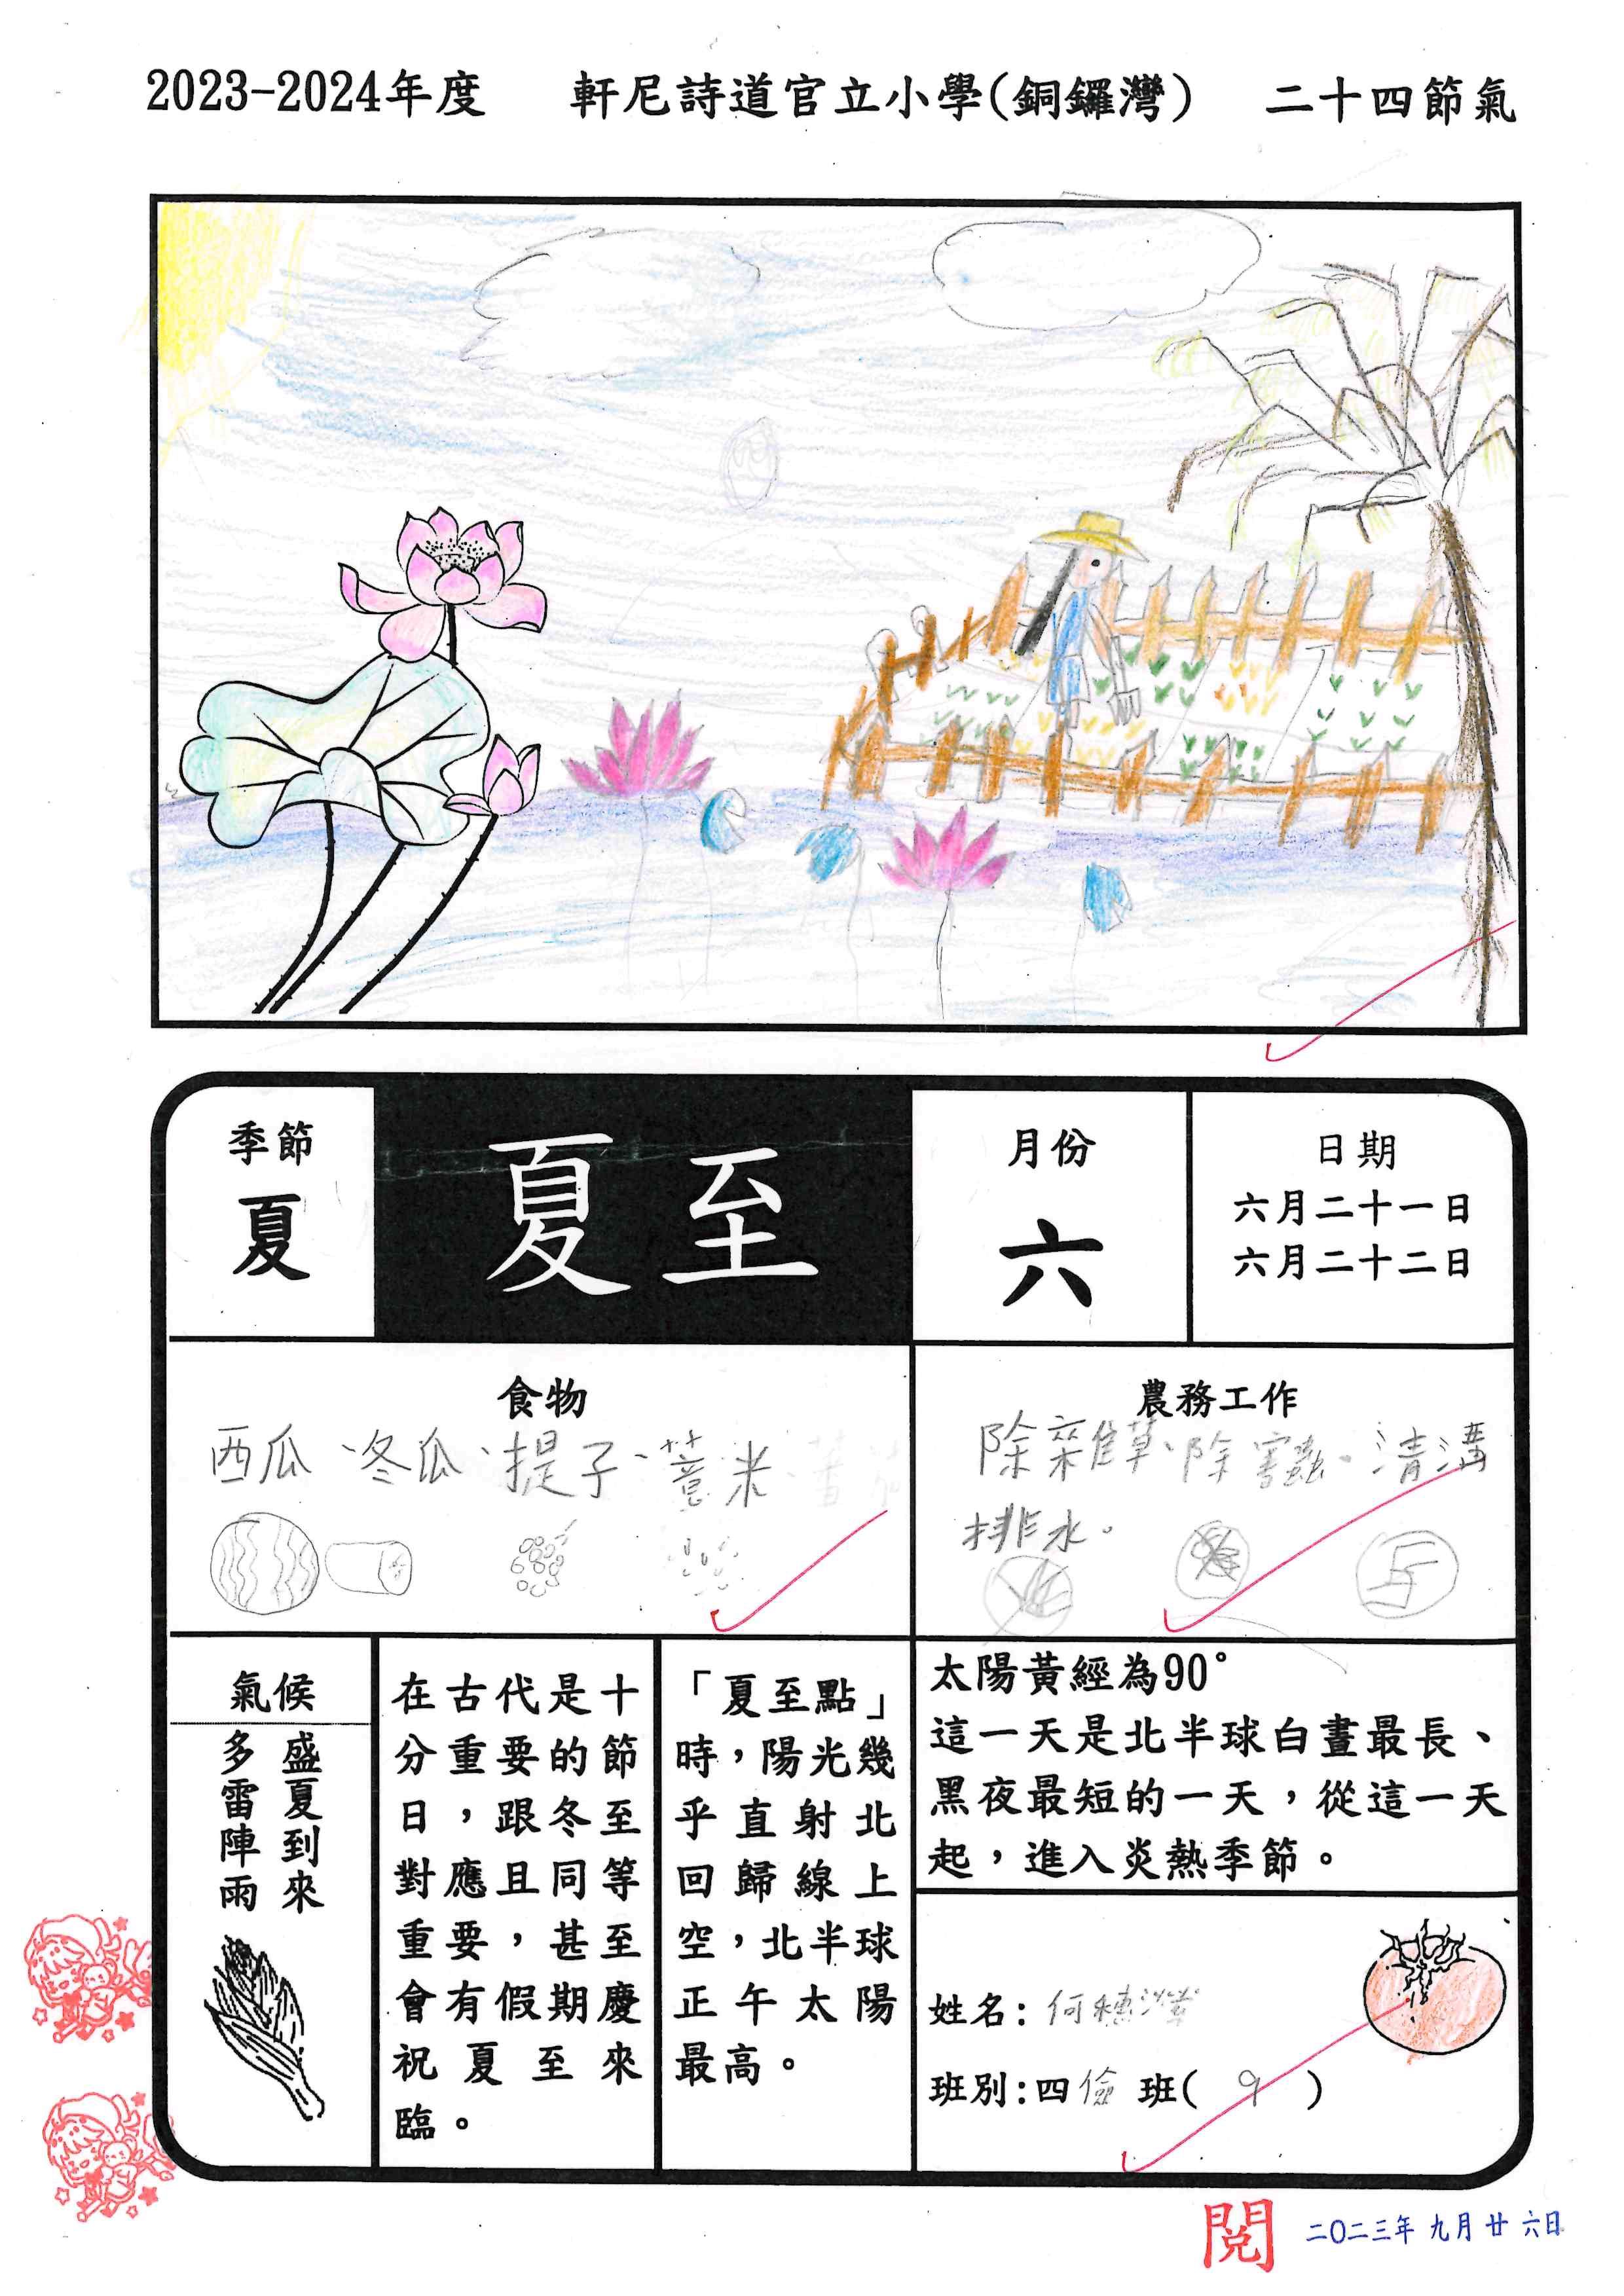 2023-2024年度 軒尼詩道官立小學(銅鑼灣) 二十四節氣
季節
夏
夏至
月份
六
日期
六月二十一日
六月二十二日
食物
西瓜、冬瓜、提子、薏米
農務工作
除雜草、除害蟲、清溝
排水。
氣候
盛夏到來
多雷陣雨
在古代是十
分重要的節
日，跟冬至
對應且同等
重要，甚至
會有假期慶
祝夏至來
臨。
「夏至點」
時，陽光幾
乎直射北
回歸線上
空，北半球
正午太陽
最高。
太陽黃經為90°
這一天是北半球白晝最長、
黑夜最短的一天，從這一天
起，進入炎熱季節。
姓名：何穗
班別：四儉班( 9 )
閱 二〇二三年九月廿六日